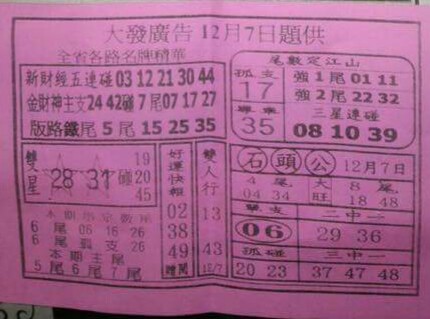 大發廣告12月7日題供
全省各路名牌精華
新財經五連碰 03 12 21 30 44
金財神主支 24 42碰7尾07 17 27
版路鐵尾 5尾 15 25 35
尾數定江山
孤支
17
強1尾 01 11
強2尾 22 32
專車
35
三星連碰
08 10 39
雙星
28 31碰
19
20
45
本期特定數尾
6尾 06 16 26
6尾孤支 26
本期主尾
5尾6尾7尾
好運快報
02
38
49
雙人行
13
43
12/7
石頭公 12月7日
4尾
04 34
大旺
8尾
18 48
雙支
06
二中一
29 36
孤碰
20 23
三中一
37 47 48